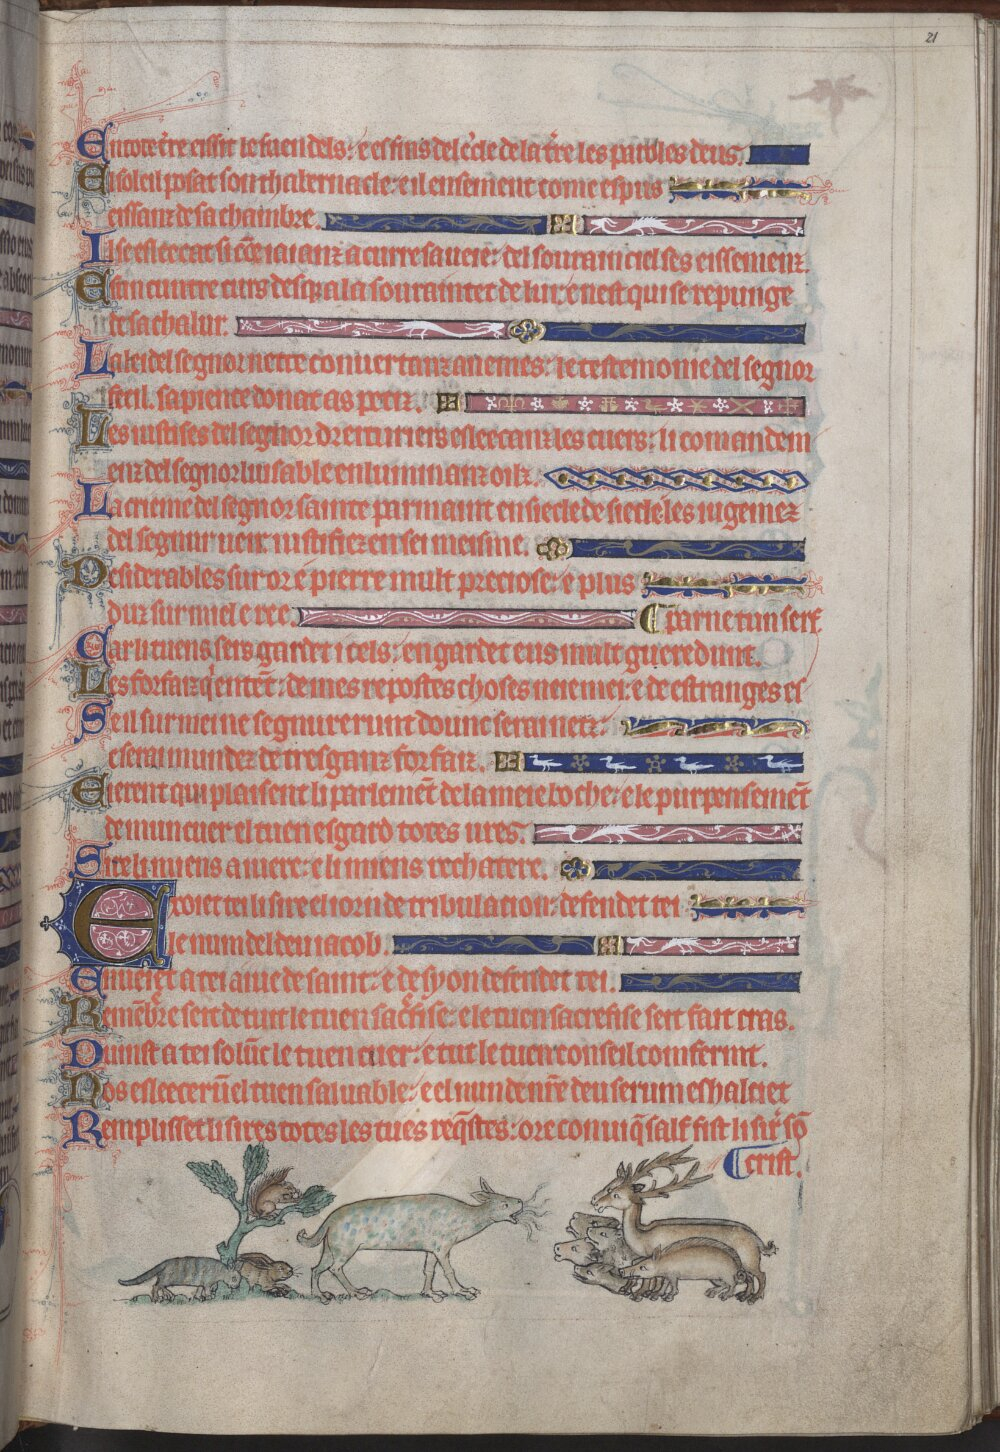 21
En tote t̄re eissit le suen dels: e es fins del ec̄le de la t̄re les paroles deus.
El soleil posat son thabernacle: e il ensement come espus
eissanz de sa chambre.
Il se esleecat si cōe iaianz a curre sa ueie: del souerain ciel ses eissemenz.
E sun cuntre curs desqª la souraintet de lui: e nest qui se repunge
de sa chalur.
La lei del segnor nette conuertanz anemes: le testemonie del segnor
feeil. sapience donat as petiz.
Les iustises del segnor dreituriers esleecanz les cuers: li comandem
enz del segnor luisable enluminanz oilz.
La crieme del segnor sainte parmaint en siecle de siecle: les iugemez
del segnur ueir iustifiez en sei meisme.
Desiderables sur or e pierre mult preciose: e plus
duz sur miel e ree.
parne tun serf.
Car li tuens sers gardet icels: en gardet eus mult gueredunt.
Les forfaiz q̄ entēt: de mes repostes choses neie mei: e de estranges es
Se il sur mei ne segnurerunt dounc serai netz:
e serai mundez de tresganz forfaiz.
E ierent qui plaisent li parlemēt de la meie boche: e le purpensemēt
de mun cuer el tuen esgard totes ures.
Sire li miens aiuere: e li miens rechatere.
Exoiet tei li sire el iorn de tribulation: defendet tei
le num del deu iacob.
Enueiet a tei aiue de saint: e de syon defendet tei.
Remēbre seit de tuit le tuen sacrifise: e le tuen sacrefise seit fait cras.
Duinst a tei solūc le tuen cuer: e tut le tuen conseil confermt.
Nos esleecerū el tuen saluable: e el nun de nr̄e deu serum eshalciet
Remplisset li sires totes les tues req̄stes: ore conui q̄ salf fist li sir̄ sō
crist.